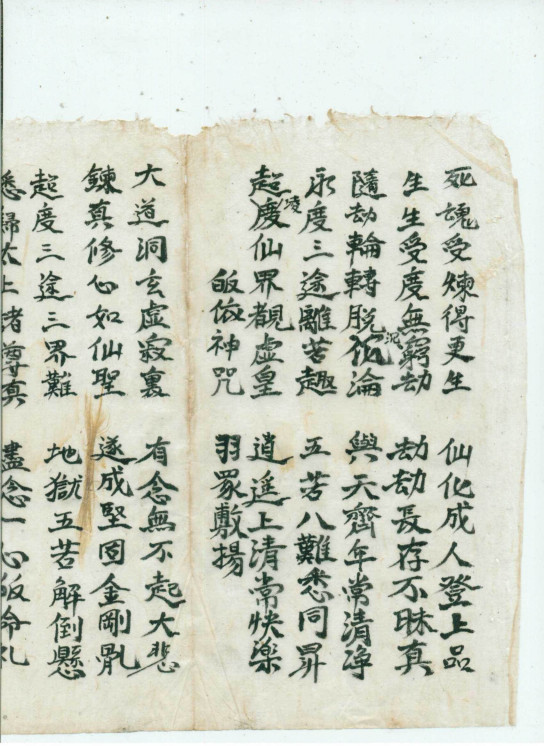 死魂受煉得更生　仙化成人登上品
生生受度無窮劫　劫劫長存不昧真
隨劫輪轉脫沉泥淪　與天齊年常清淨
永度三途離苦趣　五苦八難悉同昇
超度凌仙界覩虛皇　逍遥上清常快楽
皈依神咒　羽眾敷揚
大道洞玄虛寂裏　有念無不起大悲
鍊真修心如仙聖　遂成堅固金剛軋
超度三途三界難　地獄五苦解倒懸
悉歸太上諸尊真　盡念一心皈命礼